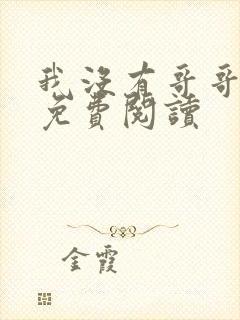 我沒有哥哥
免費閱讀
金霞